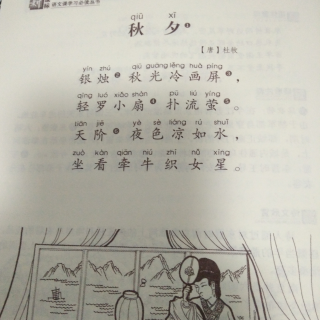 qiū xī
秋 夕❶
【唐】杜牧
yín zhú qiū guāng lěng huà píng
银 烛❷ 秋 光 冷 画 屏❸，
qīng luó xiǎo shàn pū liú yíng
轻 罗 小 扇❹ 扑 流 萤❺。
tiān jiē yè sè liáng rú shuǐ
天 阶❻ 夜 色 凉 如 水，
zuò kàn qiān niú zhī nǚ xīng
坐 看 牵 牛 织 女 星。